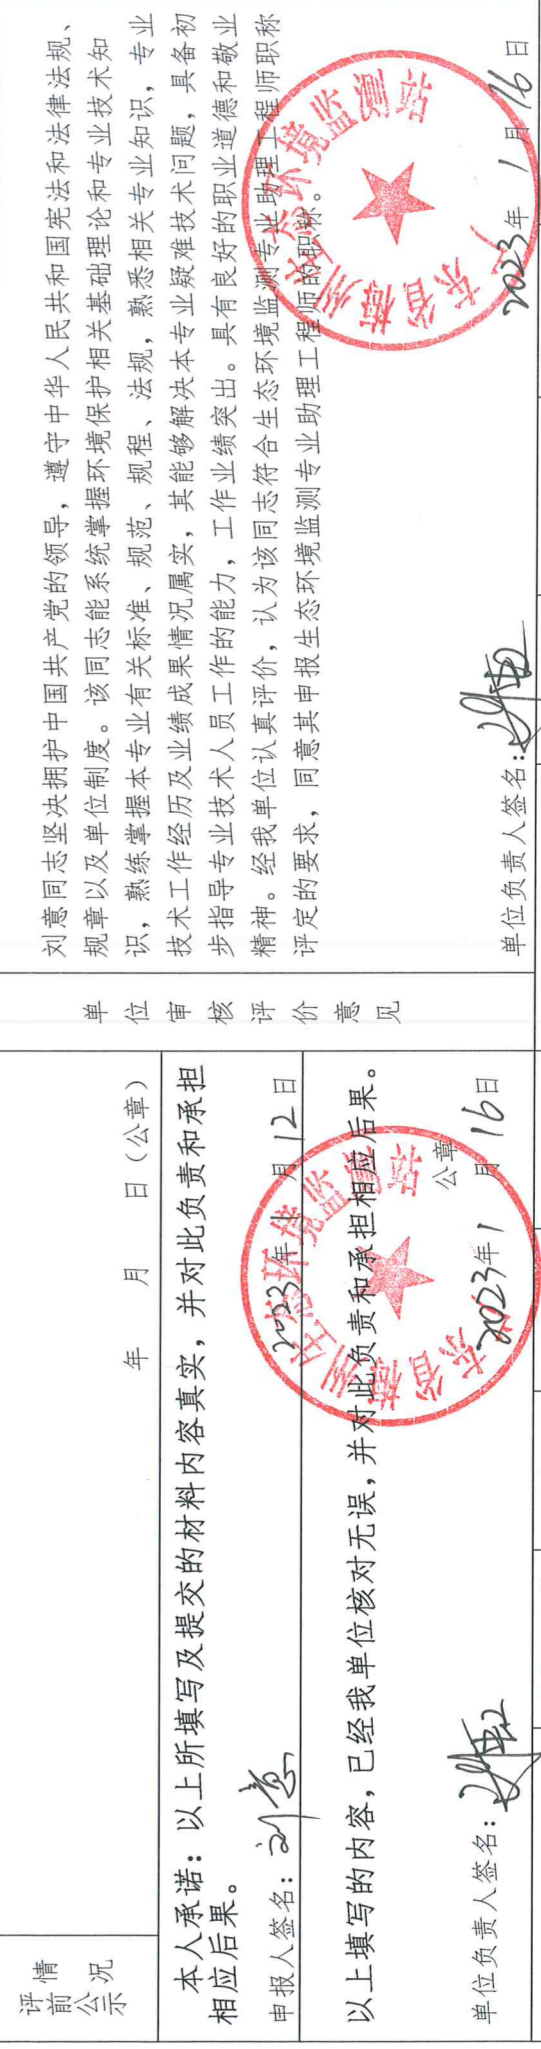 评前公示情况
年 月 日（公章）
本人承诺：以上所填写及提交的材料内容真实，并对此负责和承担
相应后果。
申报人签名：刘意
2023年1月12日
以上填写的内容，已经我单位核对无误，并对此负责和承担相应后果。
公章
单位负责人签名：
2023年1月16日
东省梅州生态环境监测站
单位审核评价意见
刘意同志坚决拥护中国共产党的领导，遵守中华人民共和国宪法和法律法规、
规章以及单位制度。该同志能系统掌握环境保护相关基础理论和专业技术知
识，熟练掌握本专业有关标准、规范、规程、法规，熟悉相关专业知识，专业
技术工作经历及业绩成果情况属实，其能够解决本专业疑难技术问题，具备初
步指导专业技术人员工作的能力，工作业绩突出。具有良好的职业道德和敬业
精神。经我单位认真评价，认为该同志符合生态环境监测专业助理工程师职称
评定的要求，同意其申报生态环境监测专业助理工程师的职称。
单位负责人签名：
2023年1月16日
广东省梅州生态环境监测站